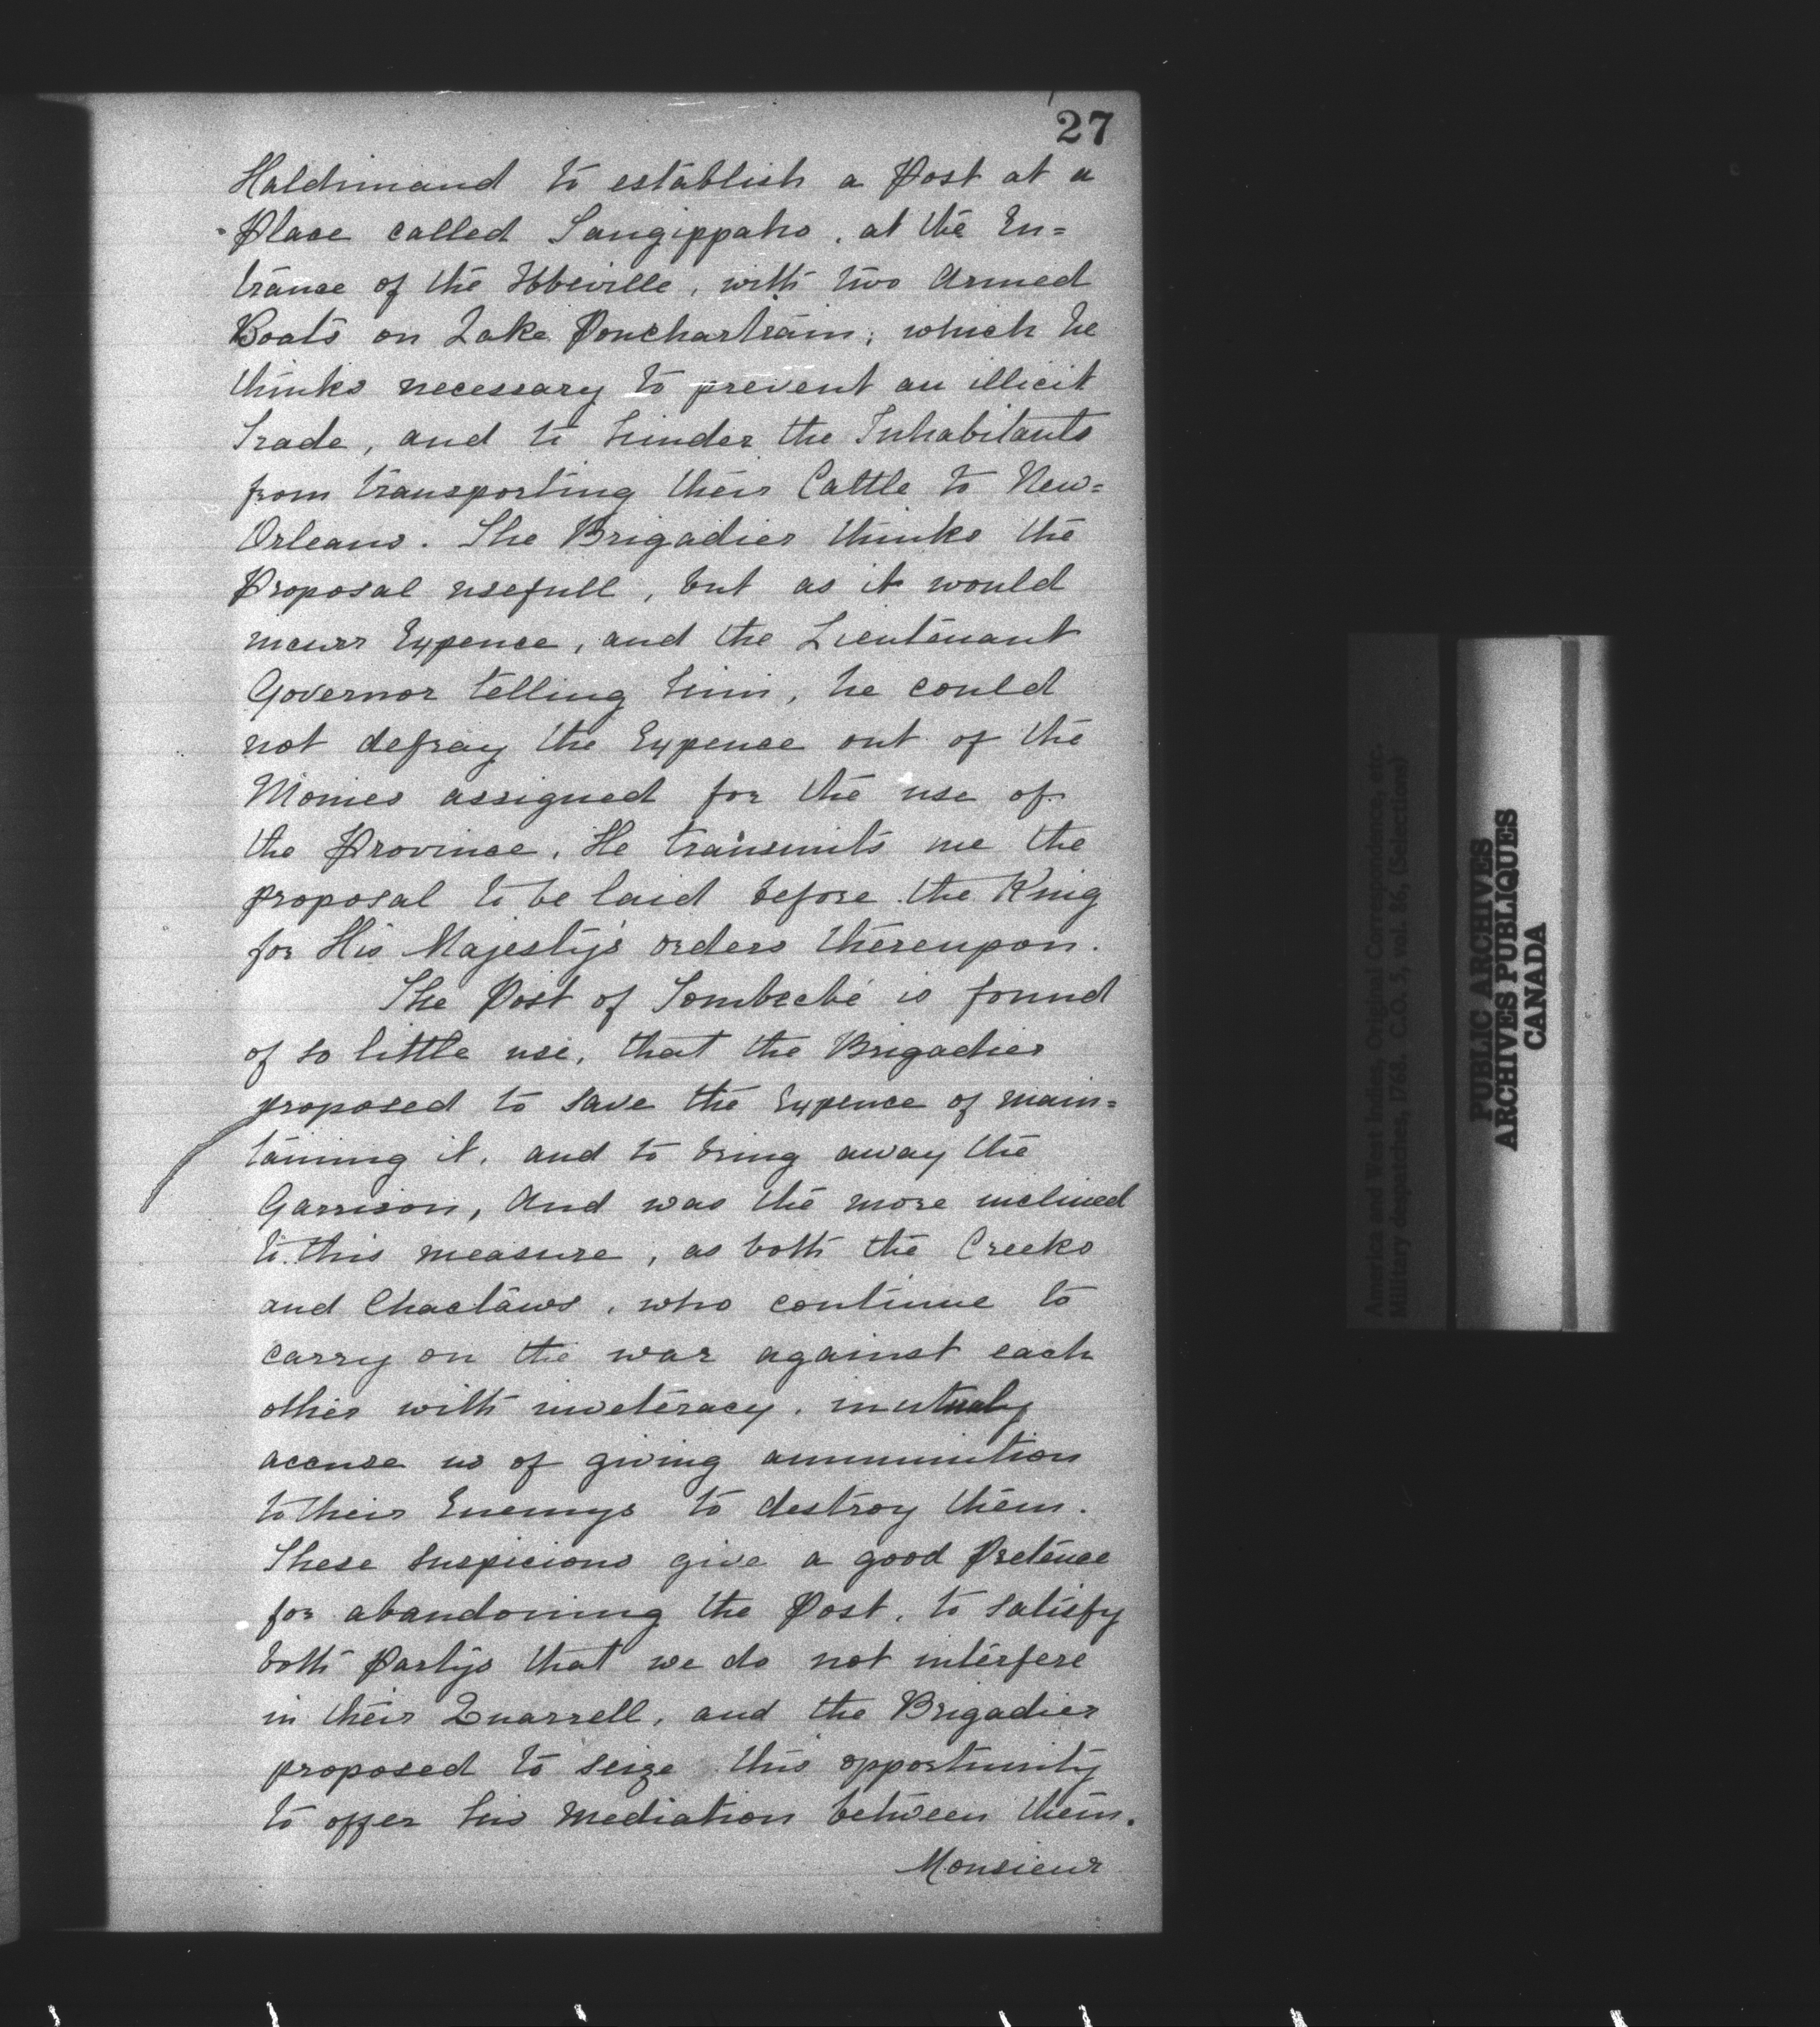 27
Haldimand to establish a Post at a
Place called Tangippaho, at the En=
trance of the Ibbeville, with two Armed
Boats on Lake Ponchartrain; which he
thinks necessary to prevent an illicit
Trade, and to hinder the Inhabitants
from transporting their Cattle to New=
Orleans. The Brigadier thinks the
Proposal usefull, but as it would
incurr Expence, and the Lieutenant
Governor telling him, he could
not defray the Expence out of the
Monies assigned for the use of
the Province, He transmits me the
proposal to be laid before the King
for His Majesty's orders thereupon.
The Post of Tombecbé is found
of so little use, that the Brigadier
proposed to save the Expence of main=
taining it, and to bring away the
Garrison, And was the more inclined
to this measure, as both the Creeks
and Chactaws, who continue to
carry on the war against each
other with inveteracy, mutualy
accuse us of giving ammunition
to their Enemys to destroy them.
These Suspicions give a good Pretence
for abandoning the Post, to satisfy
both Partys that we do not interfere
in their Quarrell, and the Brigadier
proposed to seize this opportunity
to offer his Mediation between them.
Monsieur
America and West Indies, Original Correspondence, etc.
Military despatches, 1768. C.O. 5, vol. 86, (Selections)
PUBLIC ARCHIVES
ARCHIVES PUBLIQUES
CANADA